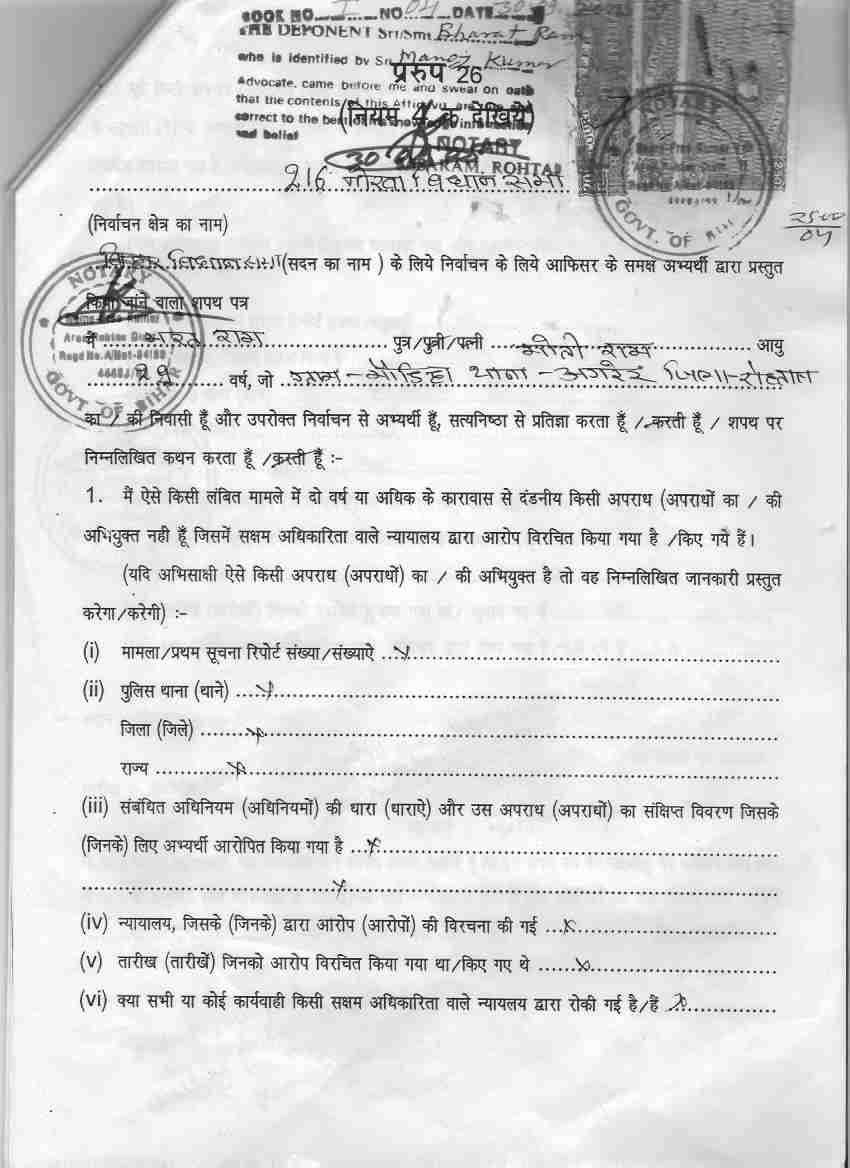 BOOK NO. I NO. 04 DATE 30-9
THE DEPONENT Sri/Smt Bharat Ram
who is identified by Sri Manoj Kumar
प्ररुप 26
Advocate, came before me and swear on oath
that the contents of this
(नियम 4 क देखिये)
correct to the best of his knowledge information
and belief
NOTARY
SASARAM, ROHTAS
विधान सभा
NOTARY
GOVT. OF BIHAR
2500
04
(निर्वाचन क्षेत्र का नाम)
बिहार विधान सभा (सदन का नाम ) के लिये निर्वाचन के लिये आफिसर के समक्ष अभ्यर्थी द्वारा प्रस्तुत
किया जाने वाला शपथ पत्र
मैं भारत राम पुत्र/पुत्री/पत्नी मोती राम आयु
29 वर्ष, जो ग्राम - थाना - अगरेर जिला - रोहतास
NOTARY
Regd No.
GOVT OF BIHAR
का / की निवासी हूँ और उपरोक्त निर्वाचन से अभ्यर्थी हूँ, सत्यनिष्ठा से प्रतिज्ञा करता हूँ / करती हूँ / शपथ पर
निम्नलिखित कथन करता हूँ / करती हूँ :-
1. मैं ऐसे किसी लंबित मामले में दो वर्ष या अधिक के कारावास से दंडनीय किसी अपराध (अपराधों का / की
अभियुक्त नही हूँ जिसमें सक्षम अधिकारिता वाले न्यायालय द्वारा आरोप विरचित किया गया है /किए गये हैं।
(यदि अभिसाक्षी ऐसे किसी अपराध (अपराधों) का / की अभियुक्त है तो वह निम्नलिखित जानकारी प्रस्तुत
करेगा/करेगी) :-
(i) मामला/प्रथम सूचना रिपोर्ट संख्या/संख्याऐ ...x
(ii) पुलिस थाना (थाने) ...x
जिला (जिले) ...x
राज्य ...x
(iii) संबंधित अधिनियम (अधिनियमों) की धारा (धाराऐ) और उस अपराध (अपराधों) का संक्षिप्त विवरण जिसके
(जिनके) लिए अभ्यर्थी आरोपित किया गया है ...x
x
(iv) न्यायालय, जिसके (जिनके) द्वारा आरोप (आरोपों) की विरचना की गई ...x
(v) तारीख (तारीखें) जिनको आरोप विरचित किया गया था/किए गए थे ...x
(vi) क्या सभी या कोई कार्यवाही किसी सक्षम अधिकारिता वाले न्यायलय द्वारा रोकी गई है/हैं x